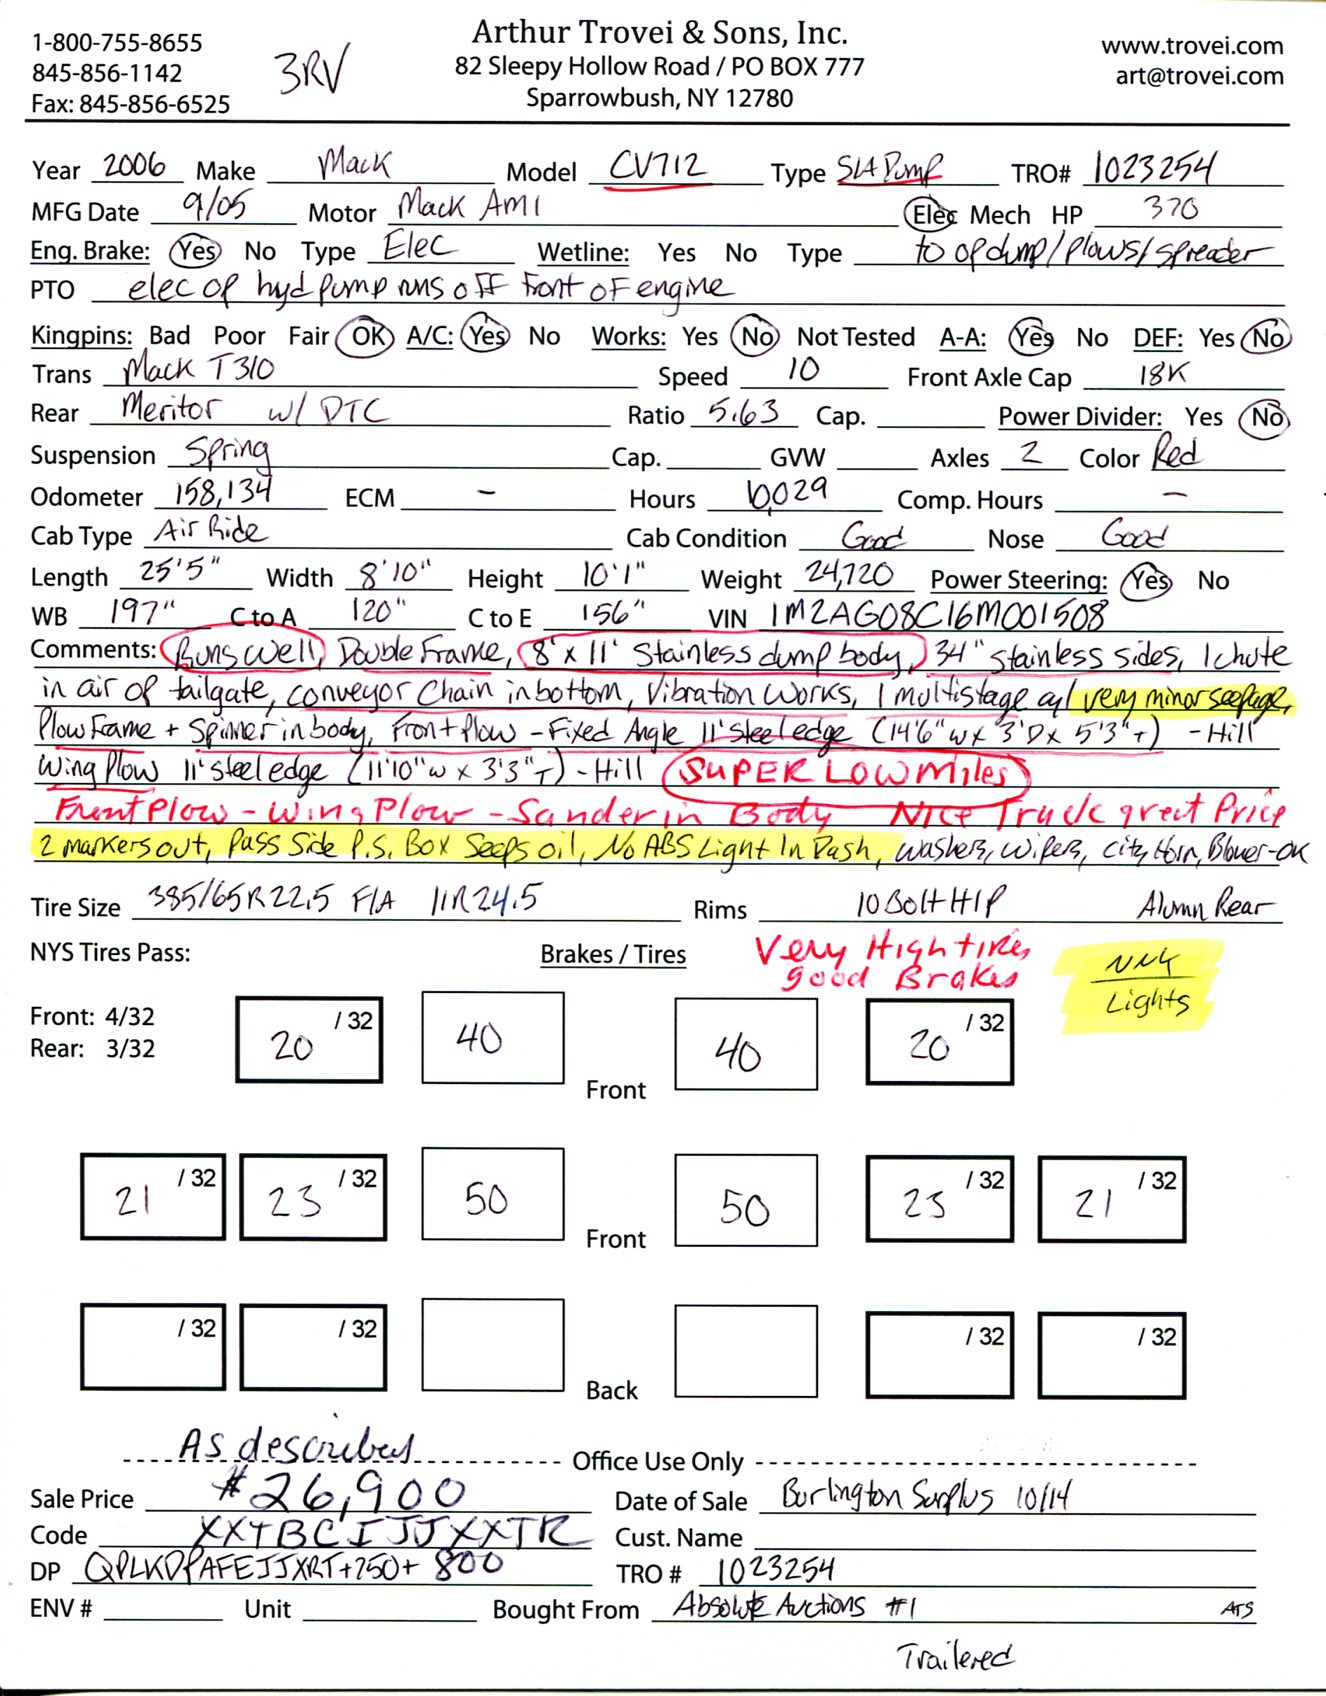 1-800-755-8655
845-856-1142
Fax: 845-856-6525
3RV
Arthur Trovei & Sons, Inc.
82 Sleepy Hollow Road / PO BOX 777
Sparrowbush, NY 12780
www.trovei.com
art@trovei.com
Year 2006 Make Mack Model CV712 Type S/A Dump TRO# 1023254
MFG Date 9/05 Motor Mack AMI Elec Mech HP 370
Eng. Brake: Yes No Type Elec Wetline: Yes No Type to op dump/plows/spreader
PTO elec op hyd pump runs off front of engine
Kingpins: Bad Poor Fair OK A/C: Yes No Works: Yes No Not Tested A-A: Yes No DEF: Yes No
Trans Mack T310 Speed 10 Front Axle Cap 18K
Rear Meritor w/ DTC Ratio 5.63 Cap. Power Divider: Yes No
Suspension Spring Cap. GVW Axles 2 Color Red
Odometer 158,134 ECM - Hours 10,029 Comp. Hours -
Cab Type Air Ride Cab Condition Good Nose Good
Length 25'5" Width 8'10" Height 10'1" Weight 24,720 Power Steering: Yes No
WB 197" C to A 120" C to E 156" VIN 1M2AG08C16M001508
Comments: Runs Well, Double Frame, 8' x 11' Stainless dump body, 34" stainless sides, 1 chute
in air op tailgate, conveyor Chain in bottom, Vibration Works, 1 multistage cyl very minor seepage,
Plow Frame + Spinner in body, Front plow - Fixed Angle 11' steel edge (14'6" w x 3'D x 5'3" T) - Hill
Wing Plow 11' steel edge (11'10" w x 3'3" T) - Hill SUPER LOW Miles
Front Plow - Wing Plow - Sander in Body Nice Truck great Price
2 markers out, Pass Side P.S. Box Seeps oil, No ABS Light In Dash, Washers, Wipers, city Horn, Blower-OK
Tire Size 385/65R22.5 F/A 11R24.5 Rims 10 Bolt H/P Alumn Rear
NYS Tires Pass: Brakes / Tires Very High tires
good Brakes
Lights
Front: 4/32
Rear: 3/32
20 /32 40 Front 40 20 /32
21 /32 23 /32 50 Front 50 23 /32 21 /32
/32 /32 Back /32 /32
As described Office Use Only
Sale Price $26,900 Date of Sale Burlington Surplus 10/14
Code XXTBCIJJXXTR Cust. Name
DP QPLKDPAFEJJXRT+750+ 800 TRO # 1023254
ENV # Unit Bought From Absolute Auctions #1 ATS
Trailered